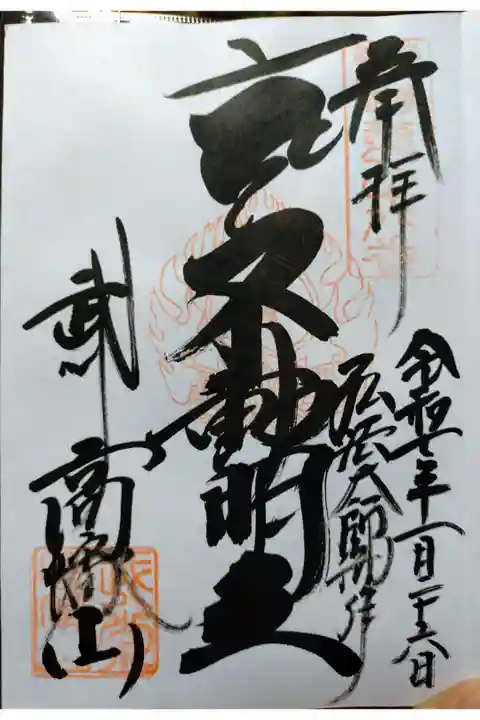 奉拝
令和七年一月二十日
弘法大師御作
不動明王
武州
高幡山